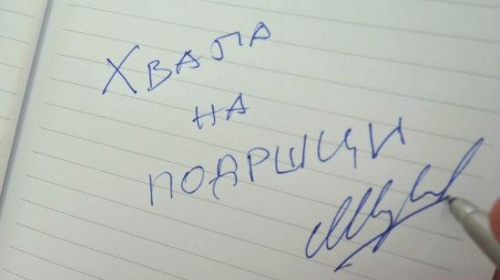 ХВАЛА
НА
ПОДРШЦИ